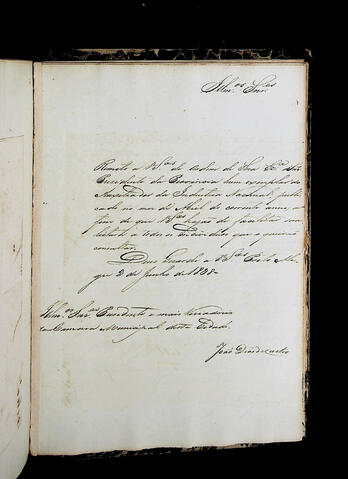 Illm.os Snr.es
Remeto a V.Sas de ordem de Sua Ex.a o Snr
Presidente da Provincia hum exemplar do
Auxiliador da Industria Nacional, publi-
cado no mez de Abril do corrente anno, a
fim de que V.Sas hajão de facilitar sua
leitura a todos os Individuos que o queirão
consultar.
Deos Guarde a V.Sas Porto Ale-
gre 2 de Junho de 1838
Illm.os Snr.es Presidente e mais Vereadores
da Camara Municipal desta Cidade.
João Dias de Castro